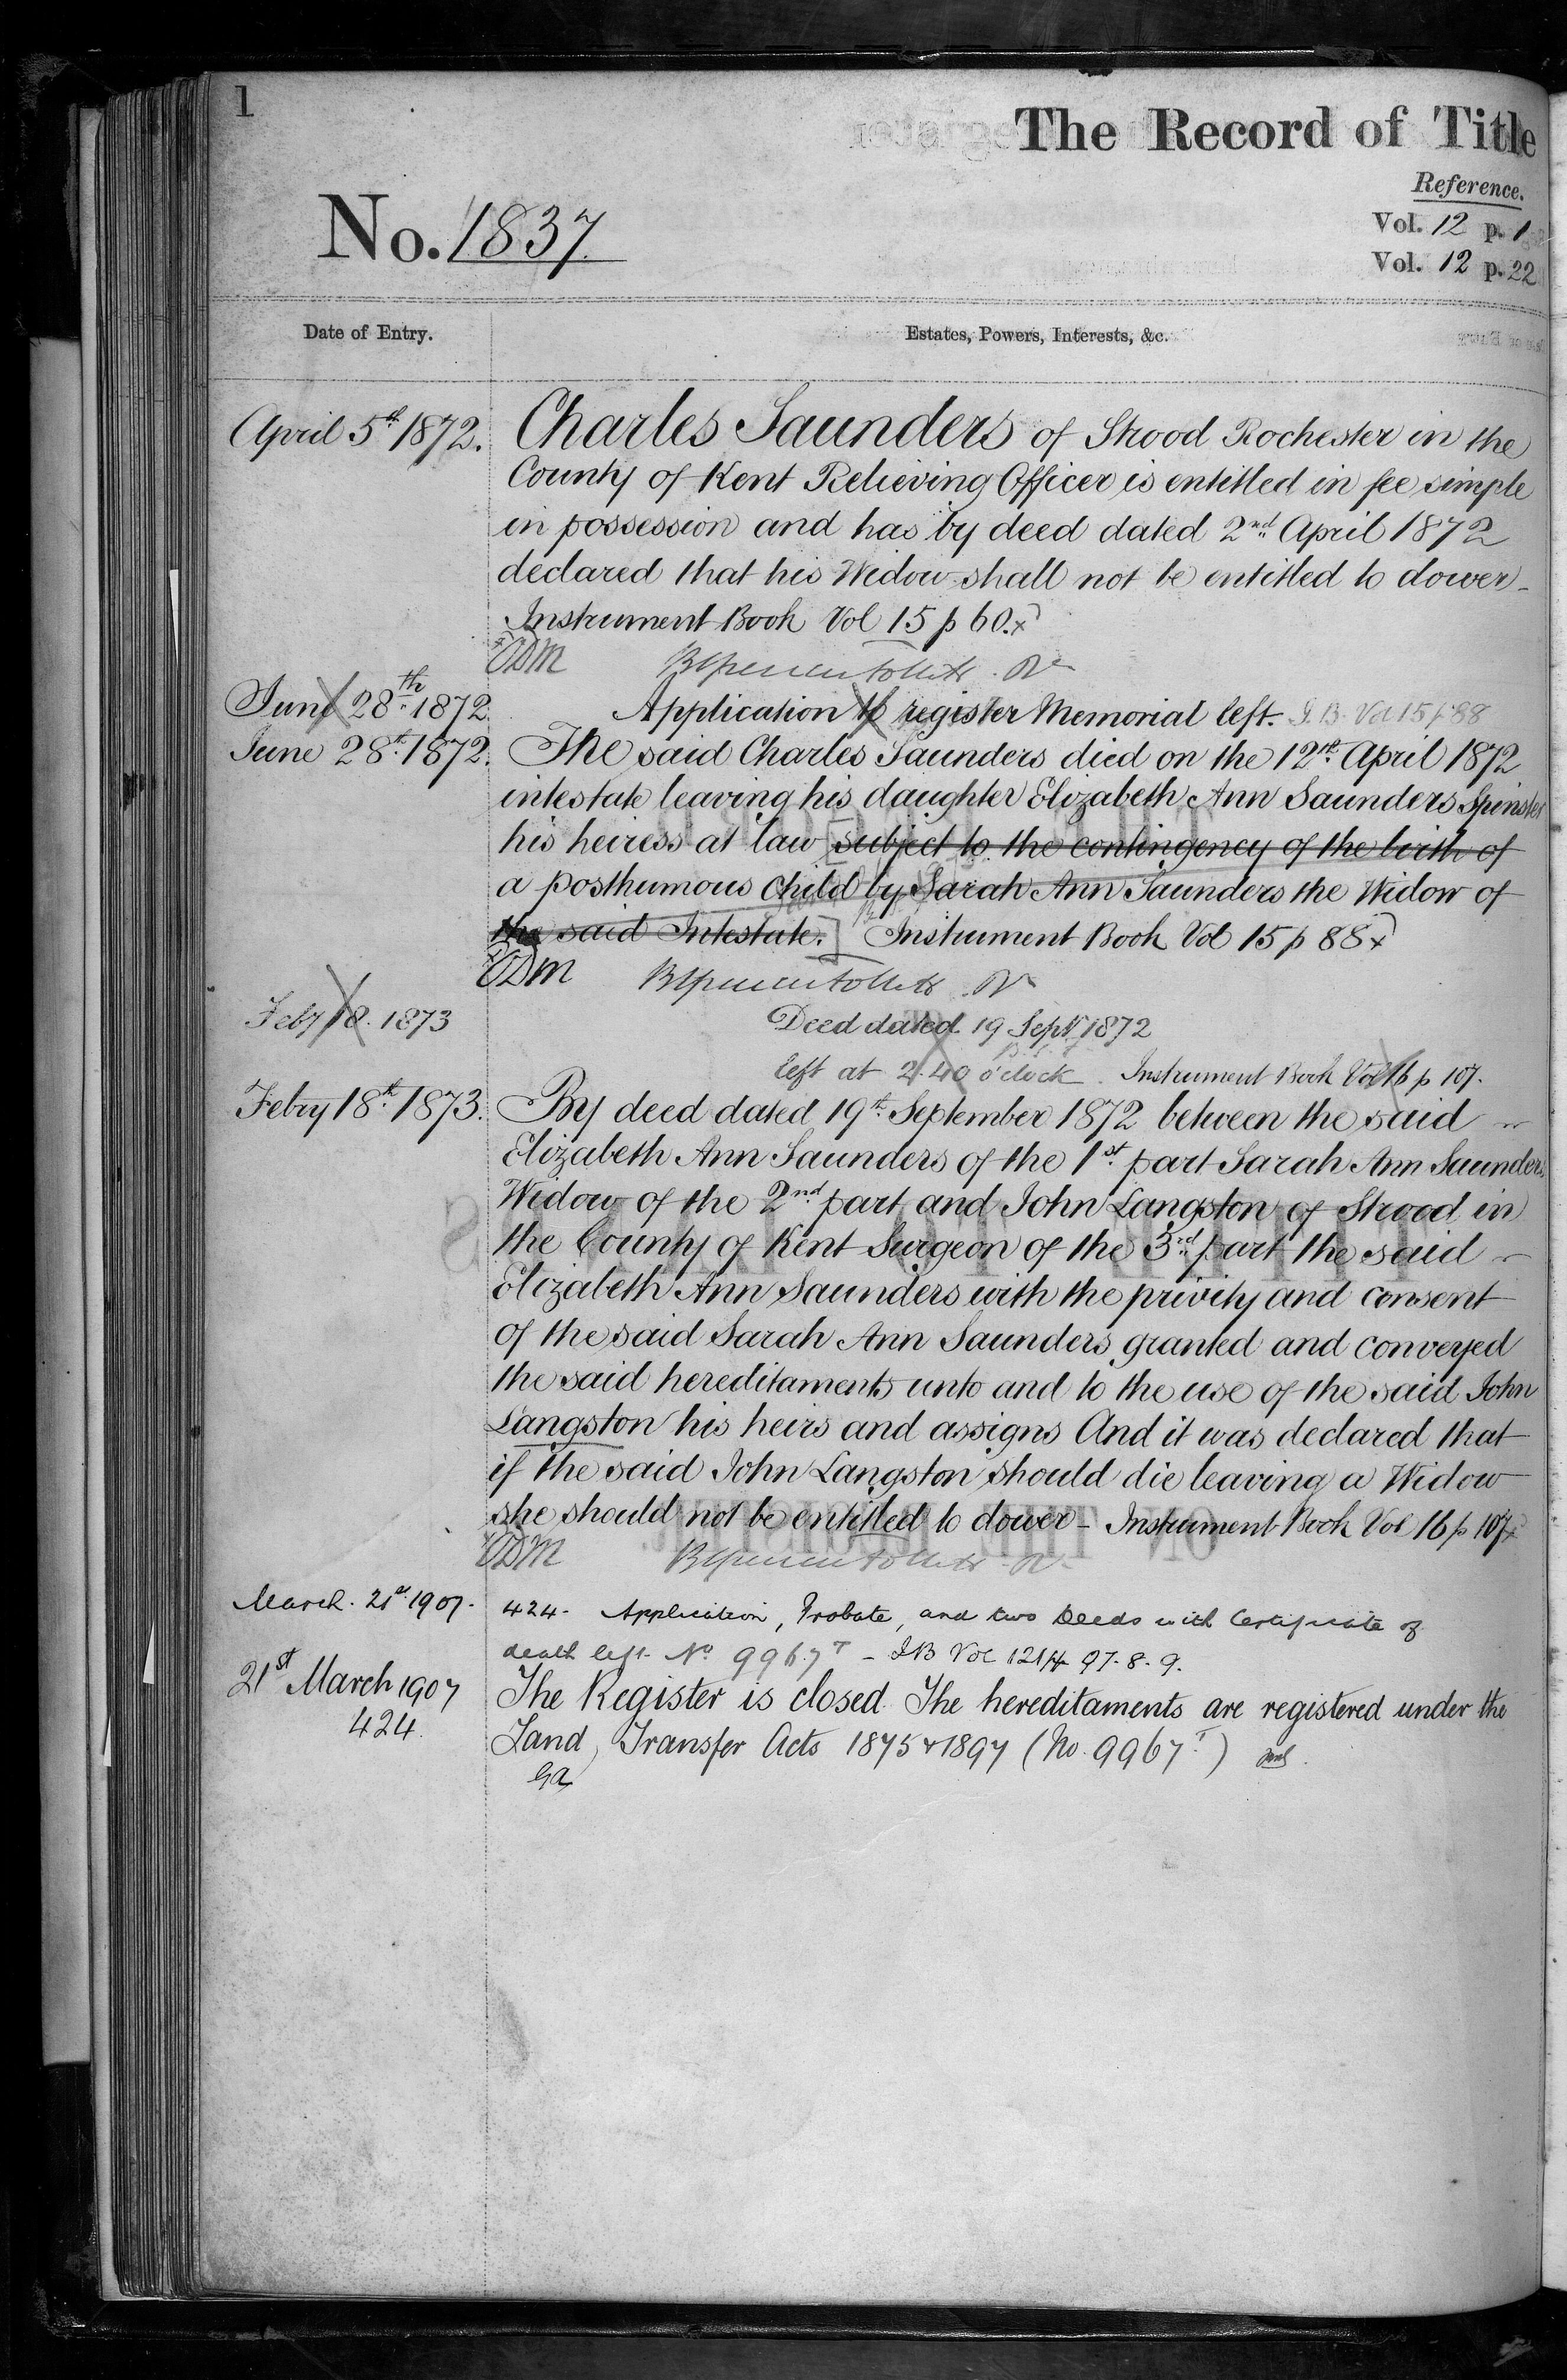 1
The Record of Title
Reference.
No. 1837.
Vol. 12 p. 1
Vol. 12 p. 22
Date of Entry.
Estates, Powers, Interests, &c.
April 5th 1872. Charles Saunders of Strood Rochester in the
County of Kent Relieving Officer is entitled in fee simple
in possession and has by deed dated 2nd April 1872
declared that his Widow shall not be entitled to dower -
Instrument Book Vol 15 p 60.x
June 28th 1872. Application to register Memorial left. I.B. Vol 15 p 88
June 28th 1872. The said Charles Saunders died on the 12th April 1872
intestate leaving his daughter Elizabeth Ann Saunders Spinster
his heiress at law [subject to the contingency of the birth of
a posthumous child by Sarah Ann Saunders the Widow of
the said Intestate.] Instrument Book Vol 15 p 88x
Feby 18. 1873 Deed dated 19 Sept 1872
left at 2.40 o'clock. Instrument Book Vol 16 p 107.
Febry 18th 1873. By deed dated 19th September 1872 between the said
Elizabeth Ann Saunders of the 1st part Sarah Ann Saunders
Widow of the 2nd part and John Langston of Strood in
the County of Kent Surgeon of the 3rd part the said
Elizabeth Ann Saunders with the privity and consent
of the said Sarah Ann Saunders granted and conveyed
the said hereditaments unto and to the use of the said John
Langston his heirs and assigns And it was declared that
if the said John Langston should die leaving a Widow
she should not be entitled to dower - Instrument Book Vol 16 p 107x
March. 21st 1907. 424. Application, Probate, and two Deeds with Certificate of
death left. No 9967T - IB Vol 121 97. 8. 9.
21st March 1907 The Register is closed. The hereditaments are registered under the
424. Land Transfer Acts 1875 & 1897 (No. 9967T)